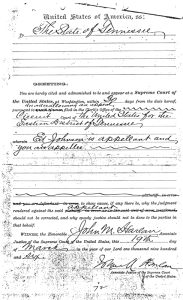 United States of America, ss:
The State of Tennessee
GREETING:
You are hereby cited and admonished to be and appear at a Supreme Court of
the United States, at Washington, within 30 days from the date hereof,
pursuant to
filed in the Clerk's Office of the
Circuit Court of the United States for the
Eastern District of Tennessee
wherein Ed Johnson is appellant and
you are appellee
to show cause, if any there be, why the judgment
rendered against the said appellant
should not be corrected, and why speedy justice should not be done to the parties in
that behalf.
WITNESS, the Honorable John M. Harlan
Justice of the Supreme Court of the United States, this 19th day
of March, in the year of our Lord one thousand nine hundred
and Six.
John M. Harlan
Associate Justice of the Supreme Court
of the United States.